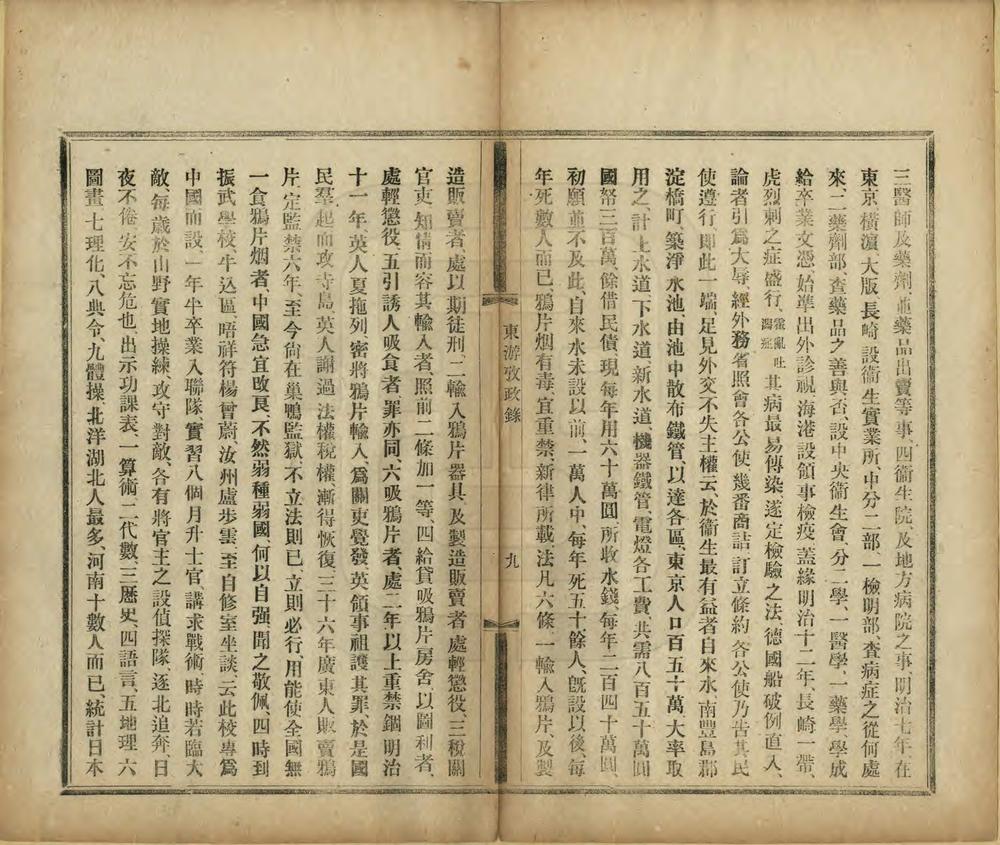 三醫師及藥劑、並藥品出賣等事、四衞生院、及地方病院之事、明治七年、在
東京橫濱大阪長崎設衞生實業所、中分二部、一檢明部、查病症之從何處
來、二藥劑部、查藥品之善與否、設中央衞生會、分二學、一醫學、一藥學、學成
給卒業文憑、始準出外診視、海港設領事檢疫、蓋緣明治十二年、長崎一帶、
虎烈刺之症盛行、霍亂吐瀉症其病最易傳染、遂定檢驗之法、德國船破例直入、
論者引爲大辱、經外務省照會各公使、幾番商詰、訂立條約、各公使乃告其民
使遵行、卽此一端、足見外交不失主權云、於衞生最有益者自來水、南豐島郡
淀橋町、築淨水池、由池中散布鐵管、以達各區、東京人口百五十萬、大率取
用之、計上水道、下水道、新水道、機器鐵管、電燈各工費、共需八百五十萬圓
國帑三百萬、餘借民債、現每年用六十萬圓、所收水錢、每年二百四十萬圓、
初願並不及此、自來水未設以前、一萬人中、每年死五十餘人、旣設以後、每
年死數人而已、鴉片烟有毒、宜重禁、新律所載、法凡六條、一輸入鴉片、及製
東游攷政錄
九
造販賣者、處以期徒刑、二輸入鴉片器具、及製造販賣者、處輕懲役、三稅關
官吏、知情而容其輸入者、照前二條加一等、四給貸吸鴉片房舍以圖利者、
處輕懲役、五引誘人吸食者、罪亦同、六吸鴉片者、處二年以上重禁錮、明治
十一年、英人夏拖列、密將鴉片輸入、爲關吏覺發、英領事袒護其罪、於是國
民羣起而攻寺島、英人謝過、法權稅權、漸得恢復、三十六年、廣東人販賣鴉
片、定監禁六年、至今尙在巢鴨監獄、不立法則已、立則必行、用能使全國無
一食鴉片烟者、中國急宜攺良、不然弱種弱國、何以自强、聞之敬佩、四時到
振武學校、牛込區、晤祥符楊曾蔚、汝州盧步雲、至自修室坐談、云此校專爲
中國而設、一年半卒業、入聯隊實習八個月、升士官、講求戰術、時時若臨大
敵、每歲於山野實地操練、攻守對敵、各有將官主之、設偵探隊、逐北追奔、日
夜不倦、安不忘危也、出示功課表、一算術、二代數、三歷史、四語言、五地理、六
圖畫、七理化、八典令、九體操、北洋湖北人最多、河南十數人而已、統計日本